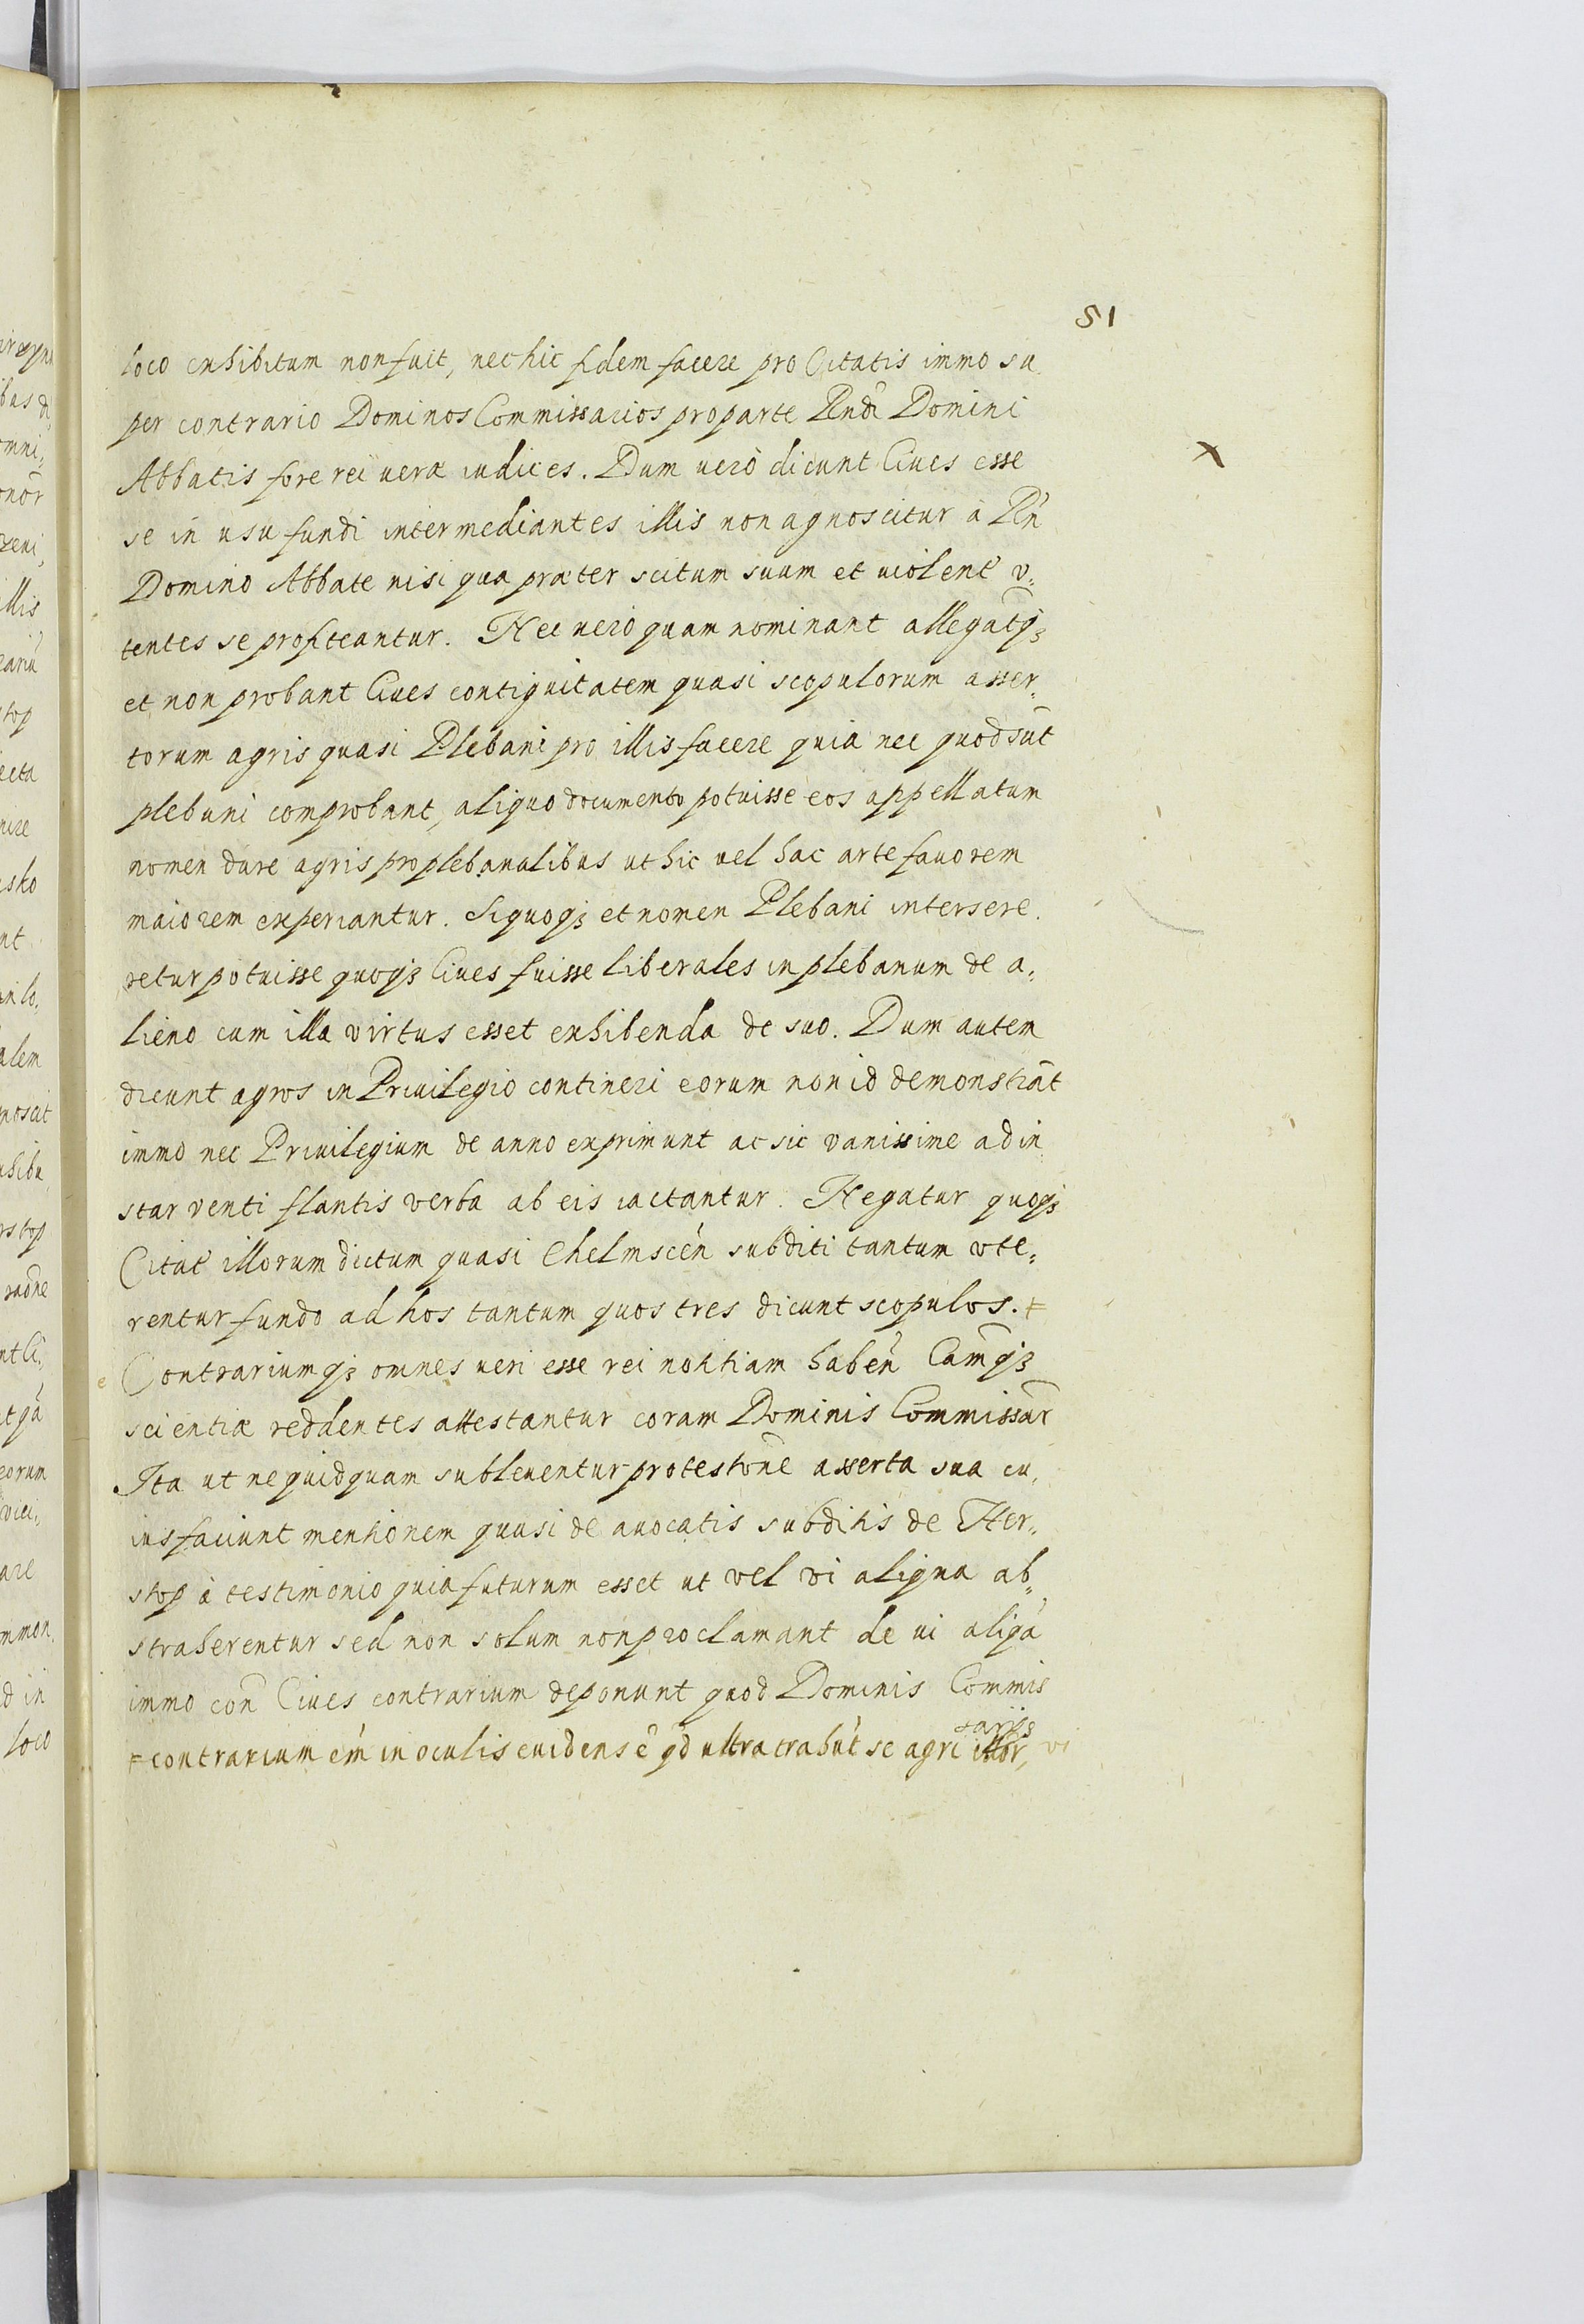 51
loco exhibitum non fuit, nec hic fidem facere pro Citatis immo su
per contrario Dominos Commissarios pro parte Rndi Domini
Abbatis fore rei veræ iudices. Dum verò dicunt Ciues esse
se in usu fundi intermediantes illis non agnoscitur à Rn
Domino Abbate nisi qua præter scitum suum et uiolent v,
tentes se profiteantur. Nec uerò quam nominant allegatqꝫ
et non probant Ciues contiguitatem quasi scopulorum asser,
torum agris quasi Plebani pro illis facere quia nec quod sūt
plebani comprobant, aliquo documento potuisse eos appellatum
nomen dare agris pro plebanalibus ut hic uel hac arte fauorem
maiorem experiantur. Siquoqꝫ et nomen Plebani intersere
retur potuisse quoqꝫ Ciues fuisse liberales in plebanum de a,
lieno cum illa virtus esset exhibenda de suo. Dum autem
dicunt agros in Priuilegio contineri eorum non id demonstrāt
immo nec Priuilegium de anno exprimunt ac sic vanissime ad in
star venti flantis verba ab eis iactantur. Negatur quoqꝫ
Citat illorum dictum quasi Chelmscen subditi tantum vte,
rentur fundo ad hos tantum quos tres dicunt scopulos. ǂ
Contrariumqꝫ omnes ueri esse rei notitiam haben Camqꝫ
scientiæ reddentes attestantur coram Dominis Commissar
Ita ut nequidquam subleuentur protestone asserta sua cu,
ius faciunt mentionem quasi de auocatis subditis de Her,
stop à testimonio quia futurum esset ut vel vi aliqua ab,
straherentur sed non solum non proclamant de ui aliqa
immo con Ciues contrarium deponunt quod Dominis Commis
sarijs
ǂ contrarium em in oculis euidens ē qd ultra trahūt se agri illor,